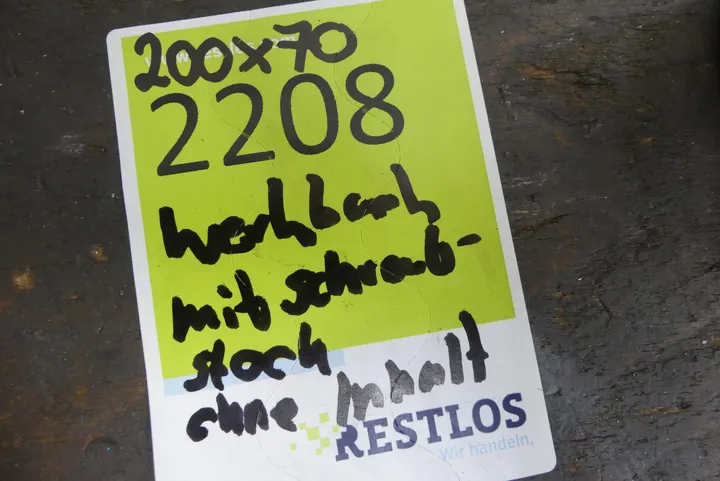 200x70
2208
Werkbank
mit Schraub-
stock
ohne Inhalt
RESTLOS
Wir handeln.